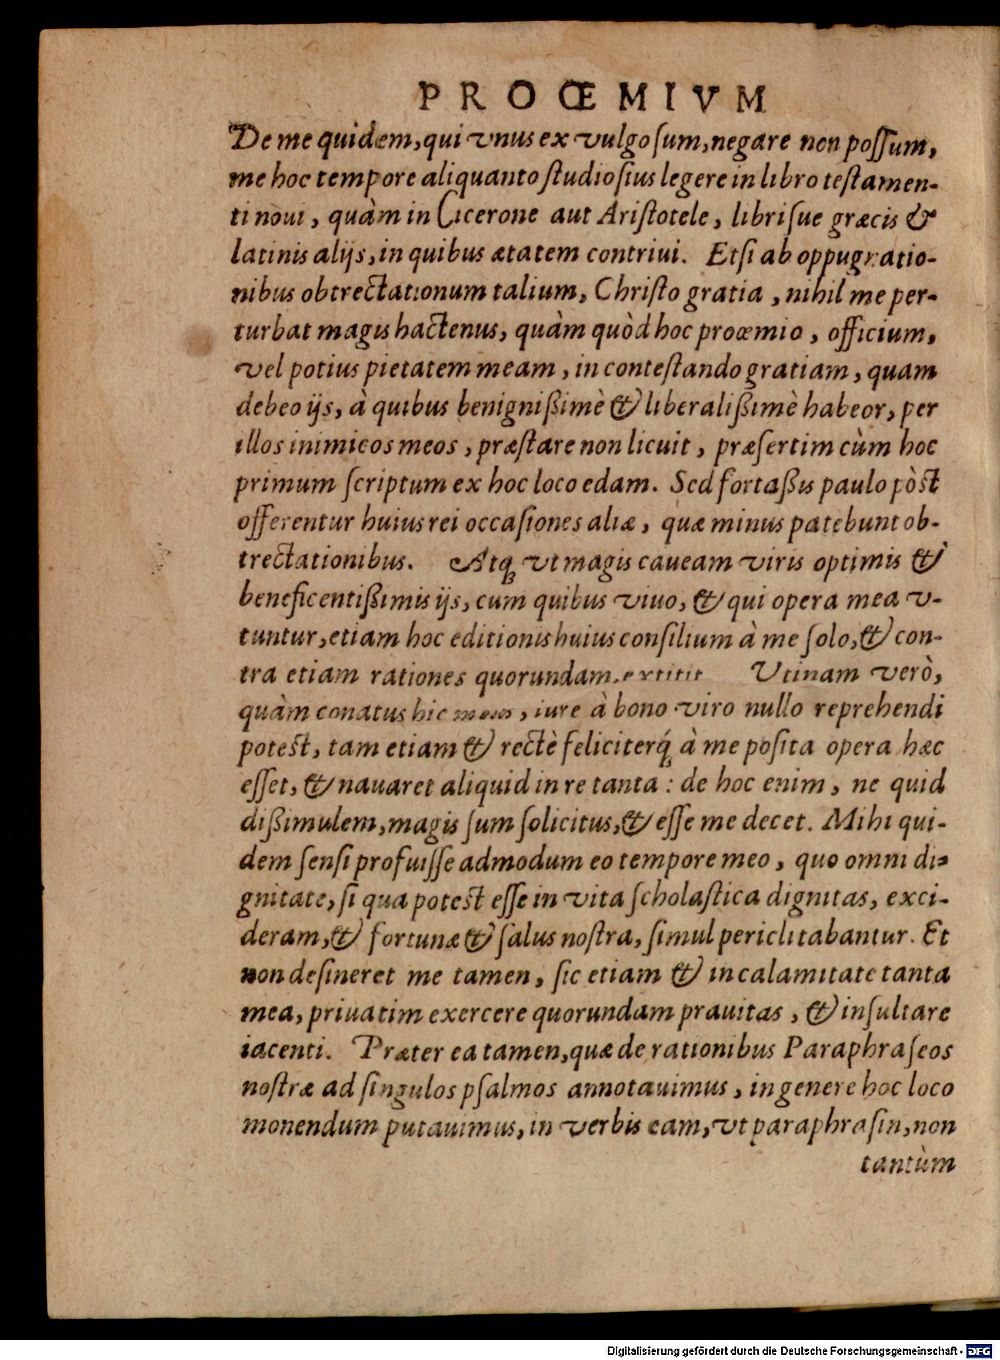 PROŒMIVM
De me quidem, qui vnus ex vulgo ſum, negare non poſſum,
me hoc tempore aliquanto ſtudioſius legere in libro teſtamen-
ti noui, quàm in Cicerone aut Ariſtotele, libriſue græcis &
latinis alijs, in quibus ætatem contriui. Etſi ab oppugnatio-
nibus obtrectationum talium, Chriſto gratia, nihil me per-
turbat magis hactenus, quàm quòd hoc proœmio, officium,
vel potius pietatem meam, in conteſtando gratiam, quam
debeo ijs, à quibus benignißimè & liberalißimè habeor, per
illos inimicos meos, præſtare non licuit, præſertim cùm hoc
primum ſcriptum ex hoc loco edam. Sed fortaßis paulo pòst
offerentur huius rei occaſiones aliæ, quæ minus patebunt ob-
trectationibus. Atq́ vt magis caueam viris optimis &
beneficentißimis ijs, cum quibus viuo, & qui opera mea v-
tuntur, etiam hoc editionis huius conſilium à me ſolo, & con-
tra etiam rationes quorundam, extitit Utinam verò,
quàm conatus hic meus, iure à bono viro nullo reprehendi
potest, tam etiam & rectè feliciterq́ à me poſita opera hæc
eſſet, & nauaret aliquid in re tanta: de hoc enim, ne quid
dißimulem, magis ſum ſolicitus, & eſſe me decet. Mihi qui-
dem ſenſi profuiſſe admodum eo tempore meo, quo omni di-
gnitate, ſi qua potest eſſe in vita ſcholaſtica dignitas, exci-
deram, & fortunæ & ſalus noſtra, ſimul periclitabantur. Et
non deſineret me tamen, ſic etiam & in calamitate tanta
mea, priuatim exercere quorundam prauitas, & inſultare
iacenti. Præter ea tamen, quæ de rationibus Paraphraſeos
noſtræ ad ſingulos pſalmos annotauimus, in genere hoc loco
monendum putauimus, in verbis eam, vt paraphraſin, non
tantùm
Digitalisierung gefördert durch die Deutsche Forschungsgemeinschaft - DFG